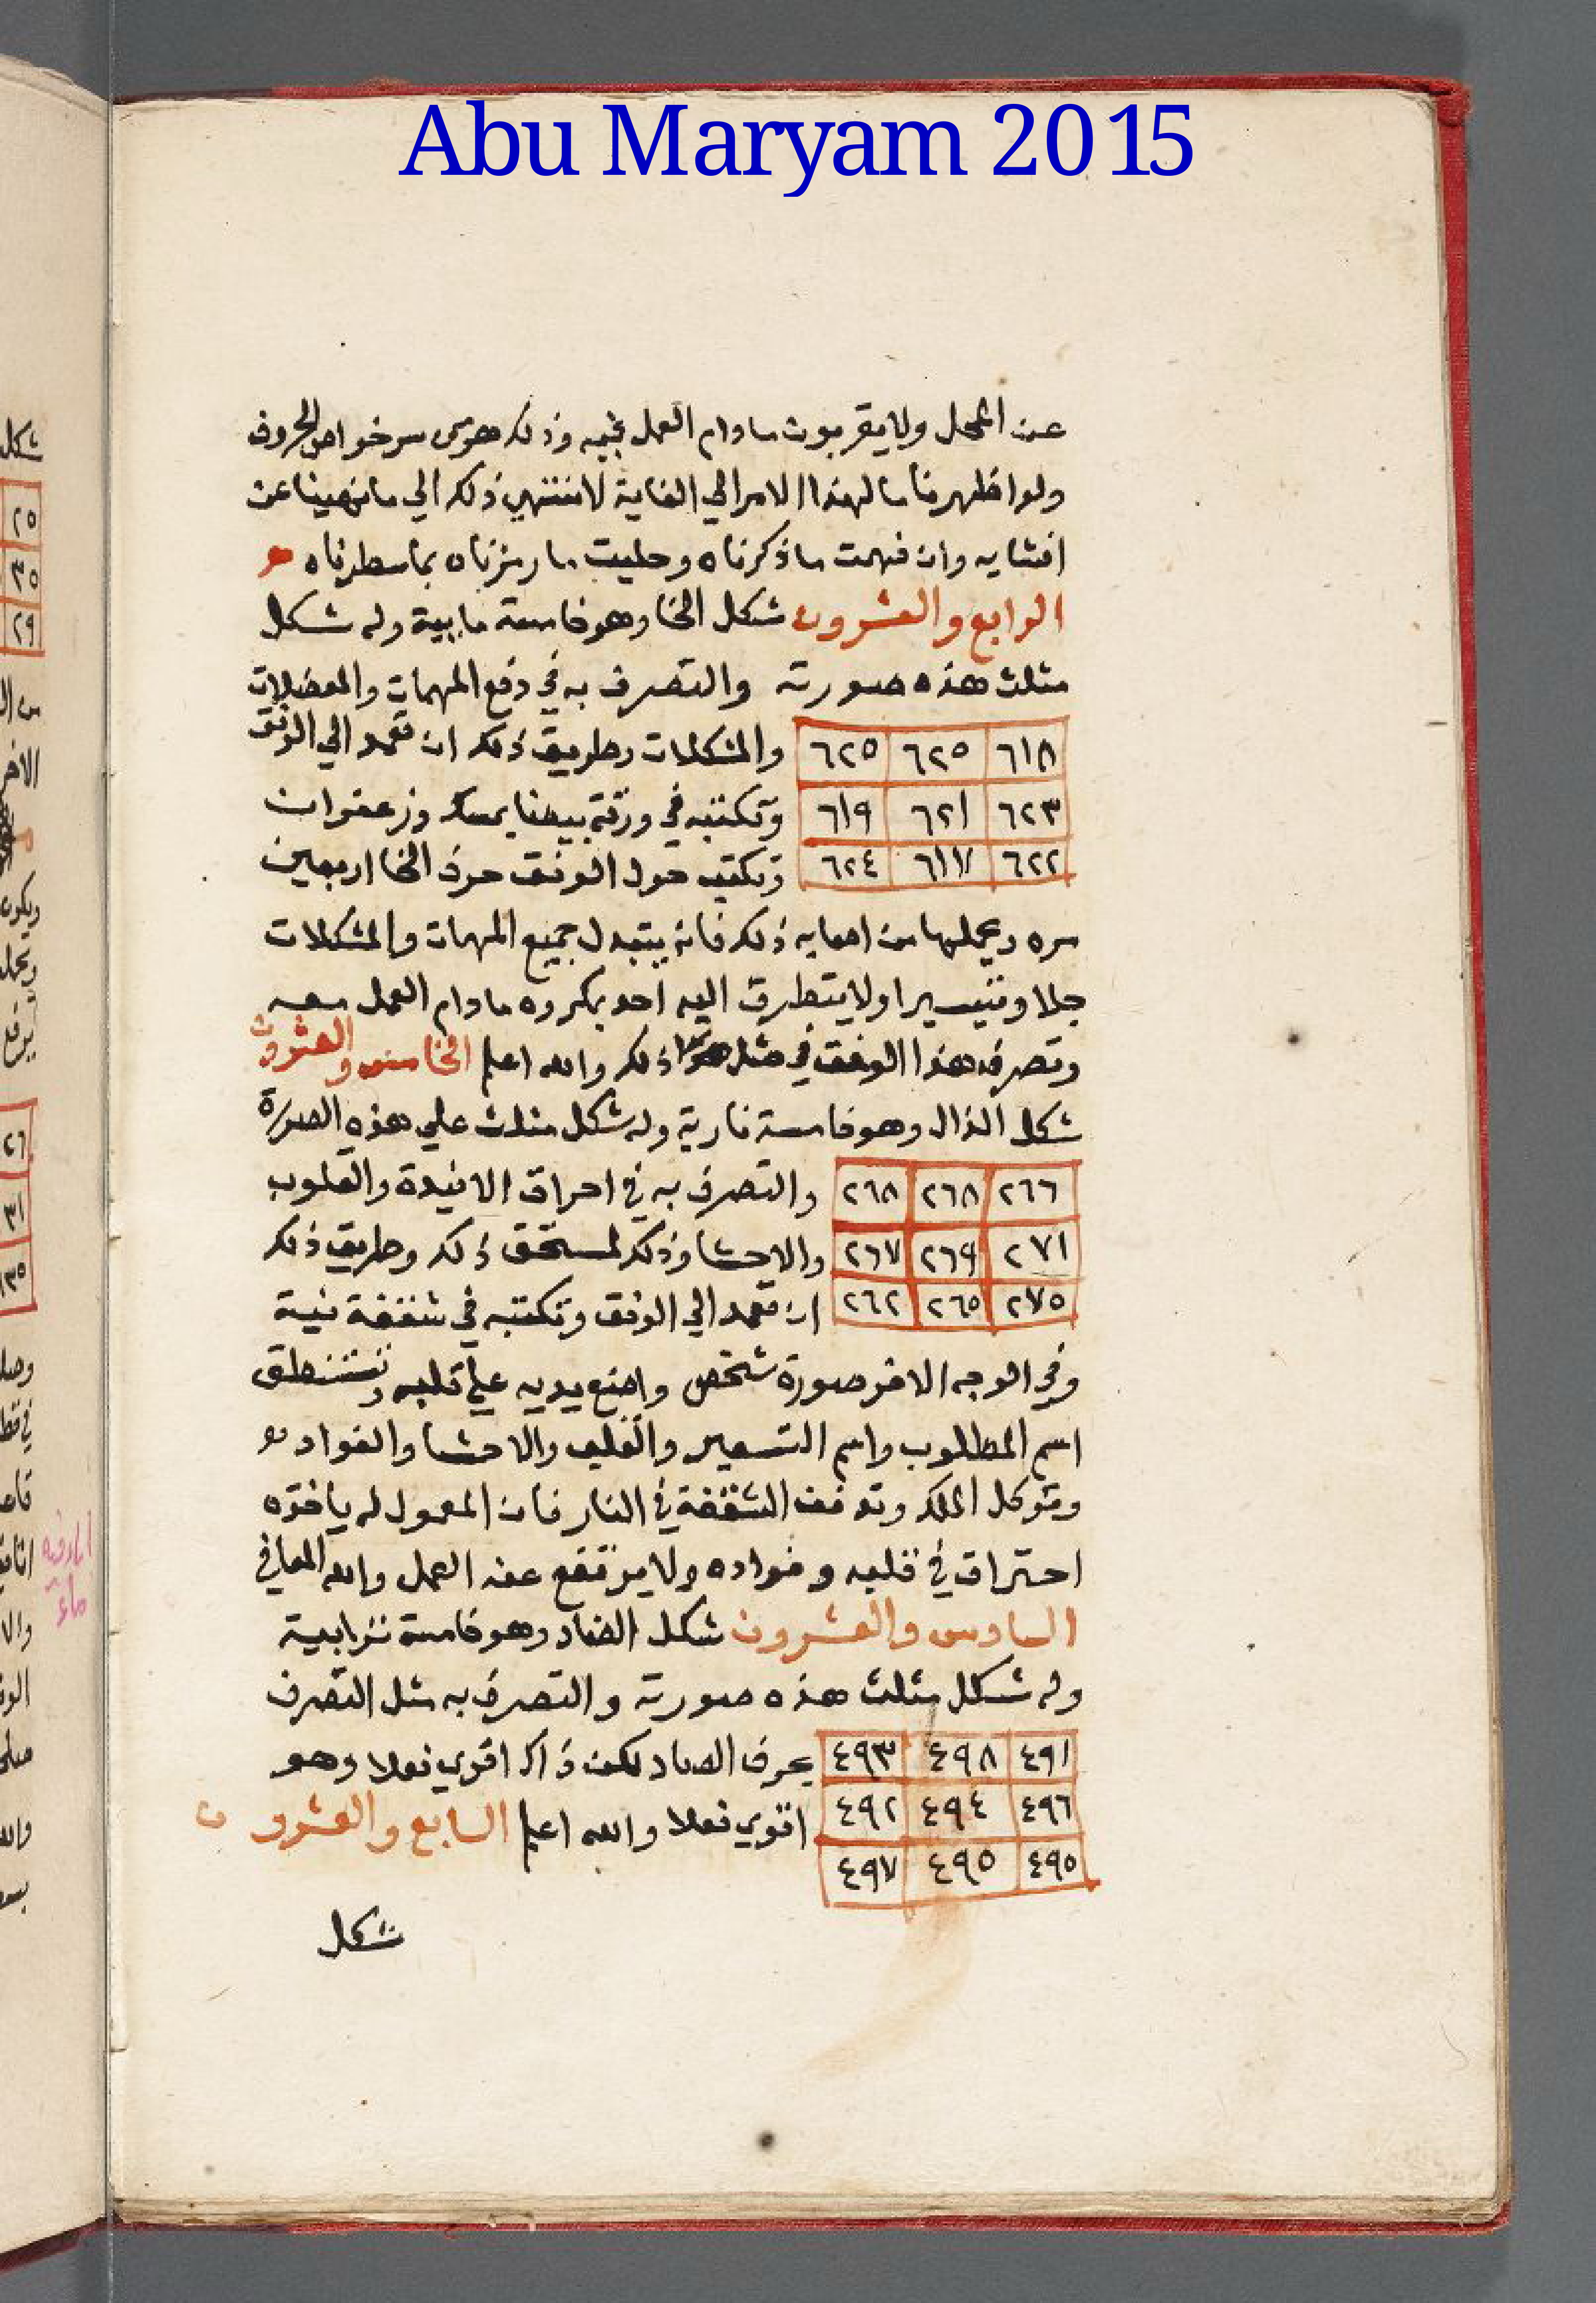 Abu Maryam 2015
عن المحل ولا يقربون مادام العمل فيه وذلك هو من سر خواص الحروف
ولو اظهرنا ما لهذا الامر الي الغاية لانتهي ذلك الي ما نهينا عن
افشايه وان فهمت ما ذكرناه وحليت ما رمزناه بما سطرناه
الرابع والعشرون شكل الخا وهو خامسة مايية وله شكل
مثلث هذه صورته والتصرف به في دفع المهمات والمعضلات
٦١٨ ٦٢٥ ٦٢٥ والمشكلات وطريق ذلك ان تعمد الي الوفق
٦٢٣ ٦٢١ ٦١٩ وتكتبه في ورقة بيضا بمسك وزعفران
٦٢٢ ٦١٧ ٦٢٤ وتكتب حول الوفق حرف الخا اربعين
مره ويحملها من اصابه ذلك فانه يتبدل جميع المهمات والمشكلات
حلا وتيسيرا ولا يتطرق اليه احد بمكروه مادام العمل معه
وتصرف هذا الوفق في مثل ذلك والله اعلم الخامس والعشرون
شكل الذال وهو خامسة نارية وله شكل مثلث علي هذه الصورة
٢٦٦ ٢٦٨ ٢٦٨ والتصرف به في احراق الافيدة والقلوب
٢٧١ ٢٦٩ ٢٦٧ والاحشا وذلك لمستحق ذلك وطريق ذلك
٢٧٥ ٢٦٥ ٢٦٢ ان تعمد الي الوفق وتكتبه في شقفة نية
وفي الوجه الاخر صورة شخص واضع يديه علي قلبه وتستنطق
اسم المطلوب واسم التسعير والقلب والاحشا والفواد
وتوكل الملك وتدفن الشقفة في النار فان المعمول له ياخذه
احتراق في قلبه وفواده ولا يرتفع عنه العمل والله المعافي
السادس والعشرون شكل الضاد وهو خامسة ترابية
وله شكل مثلث هذه صورته والتصرف به مثل التصرف
٤٩١ ٤٩٨ ٤٩٣ بحرف الصاد لكن ذاك اقوي فعلا وهو
٤٩٦ ٤٩٤ ٤٩٢ اقوي فعلا والله اعلم السابع والعشرون
٤٩٥ ٤٩٥ ٤٩٧
شكل